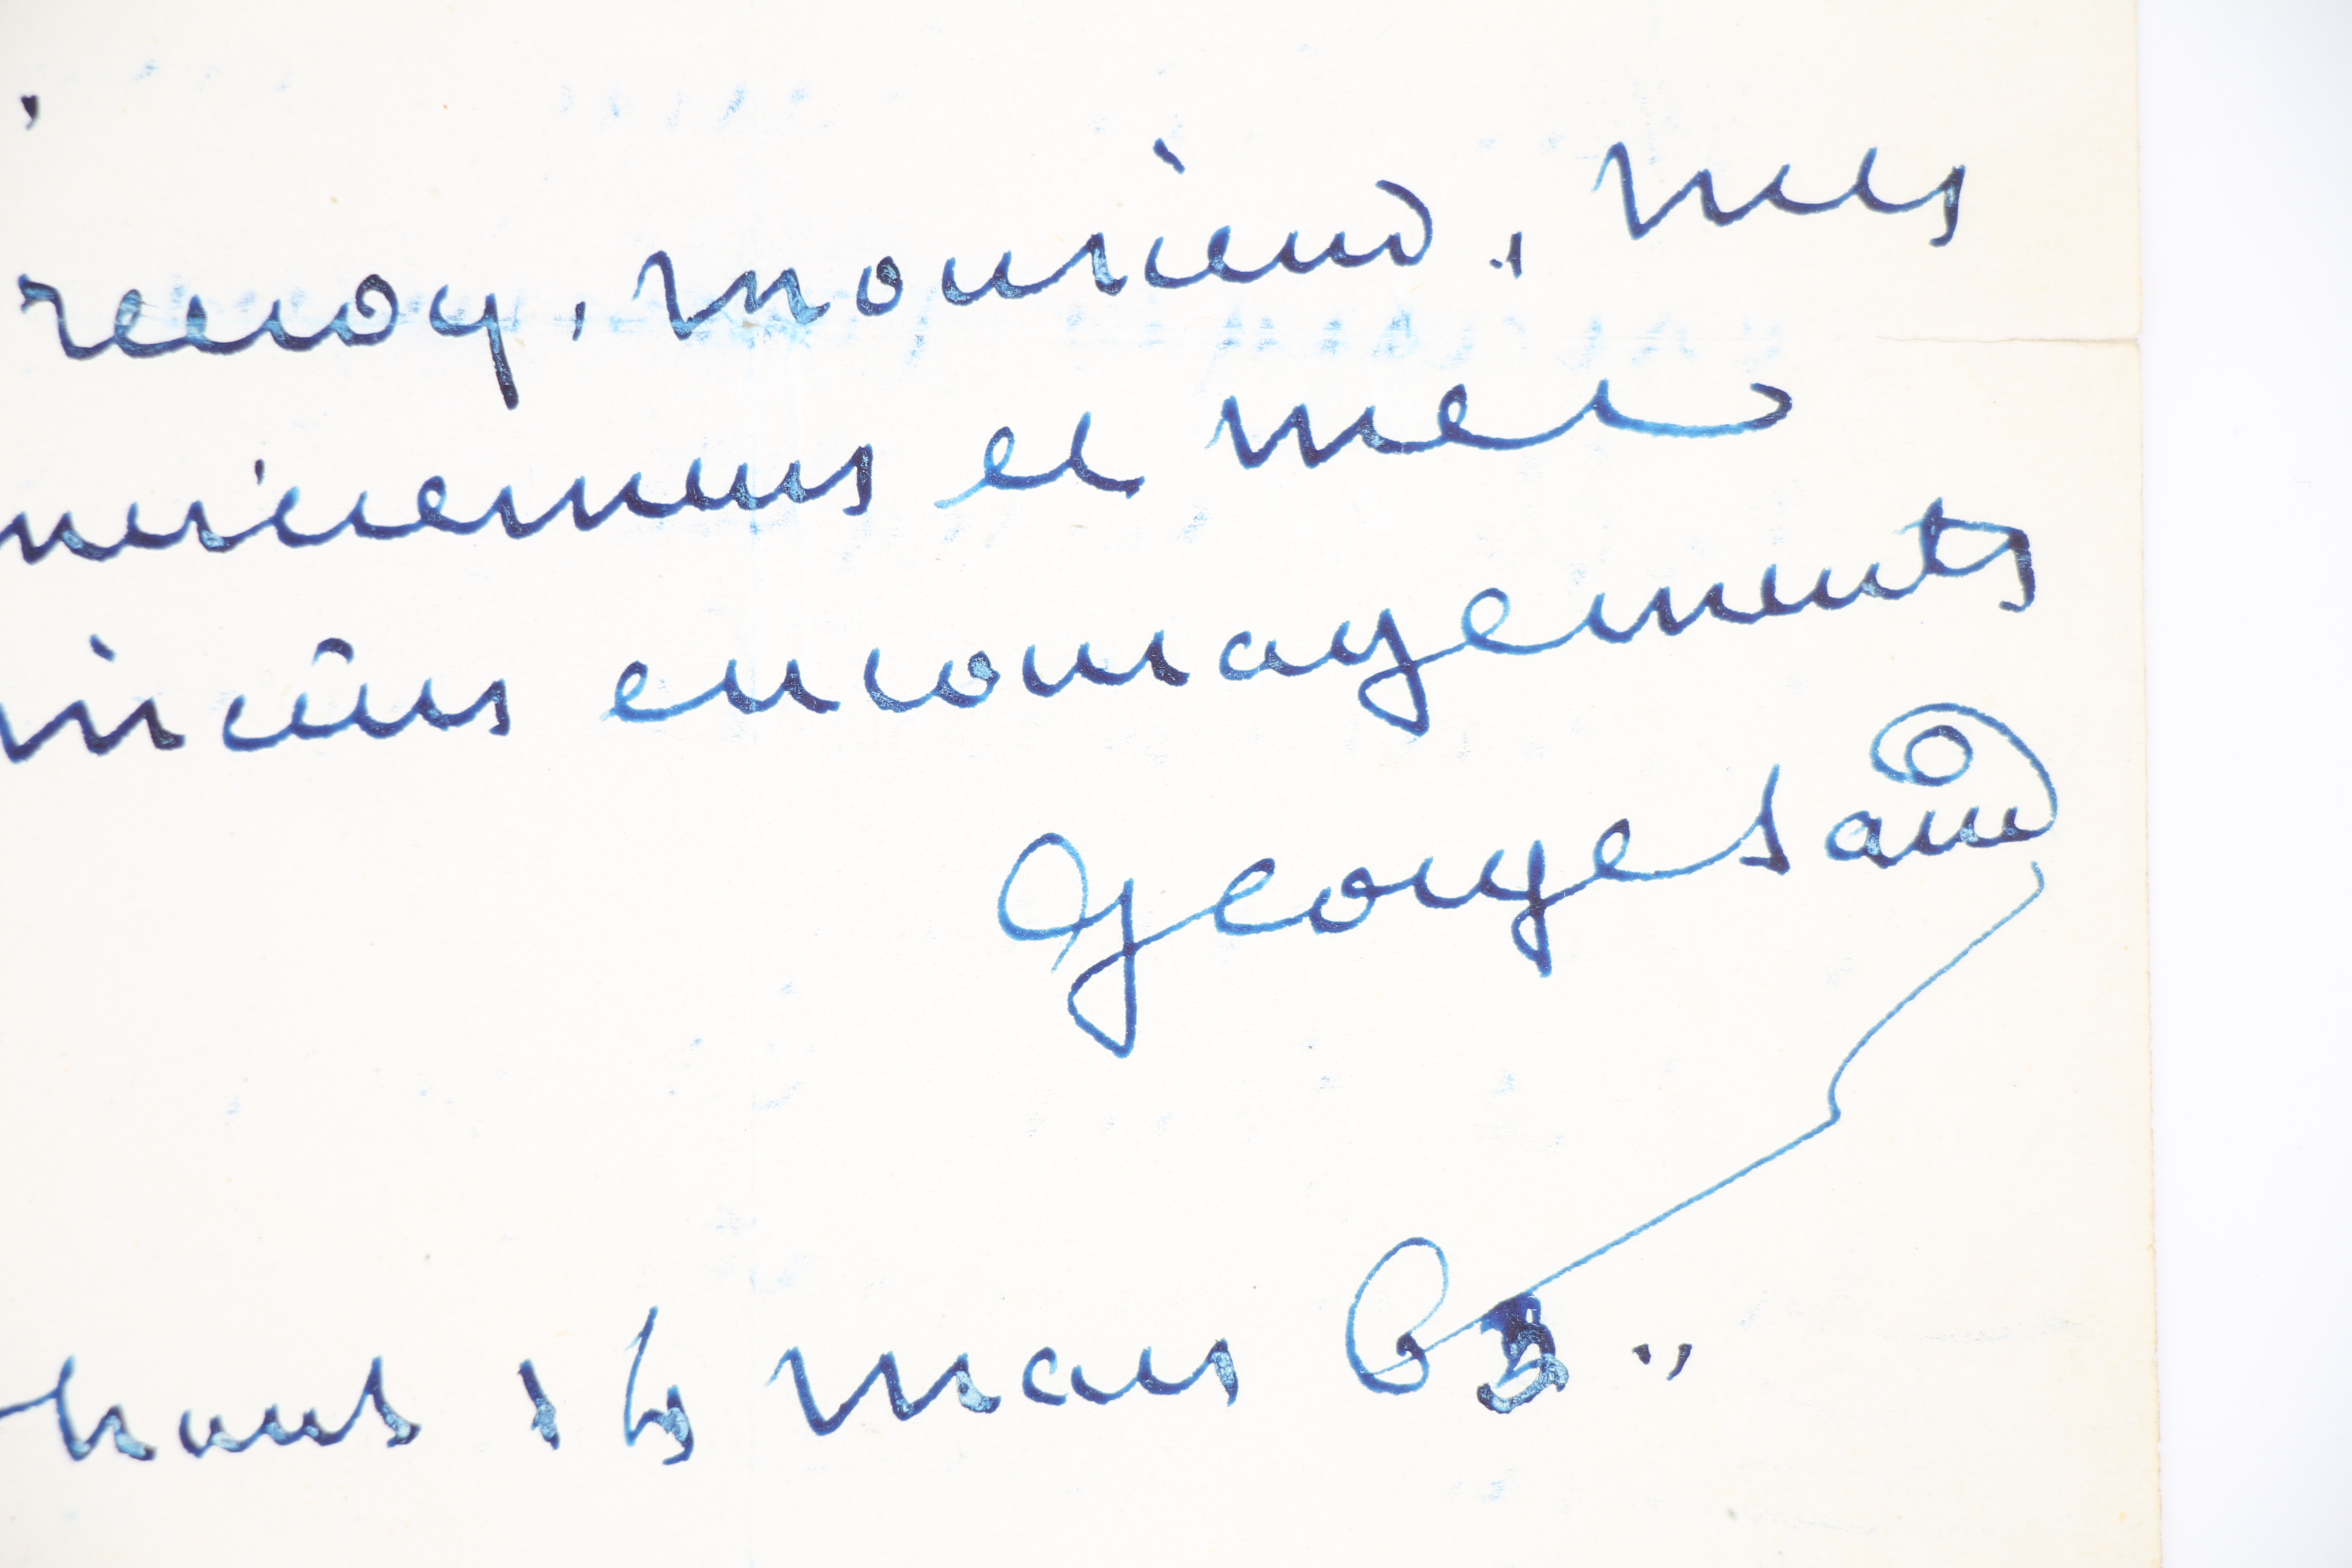 recevez, monsieur, mes
merciemens et mes
incères encouragements
George Sand
hant 14 mars 63